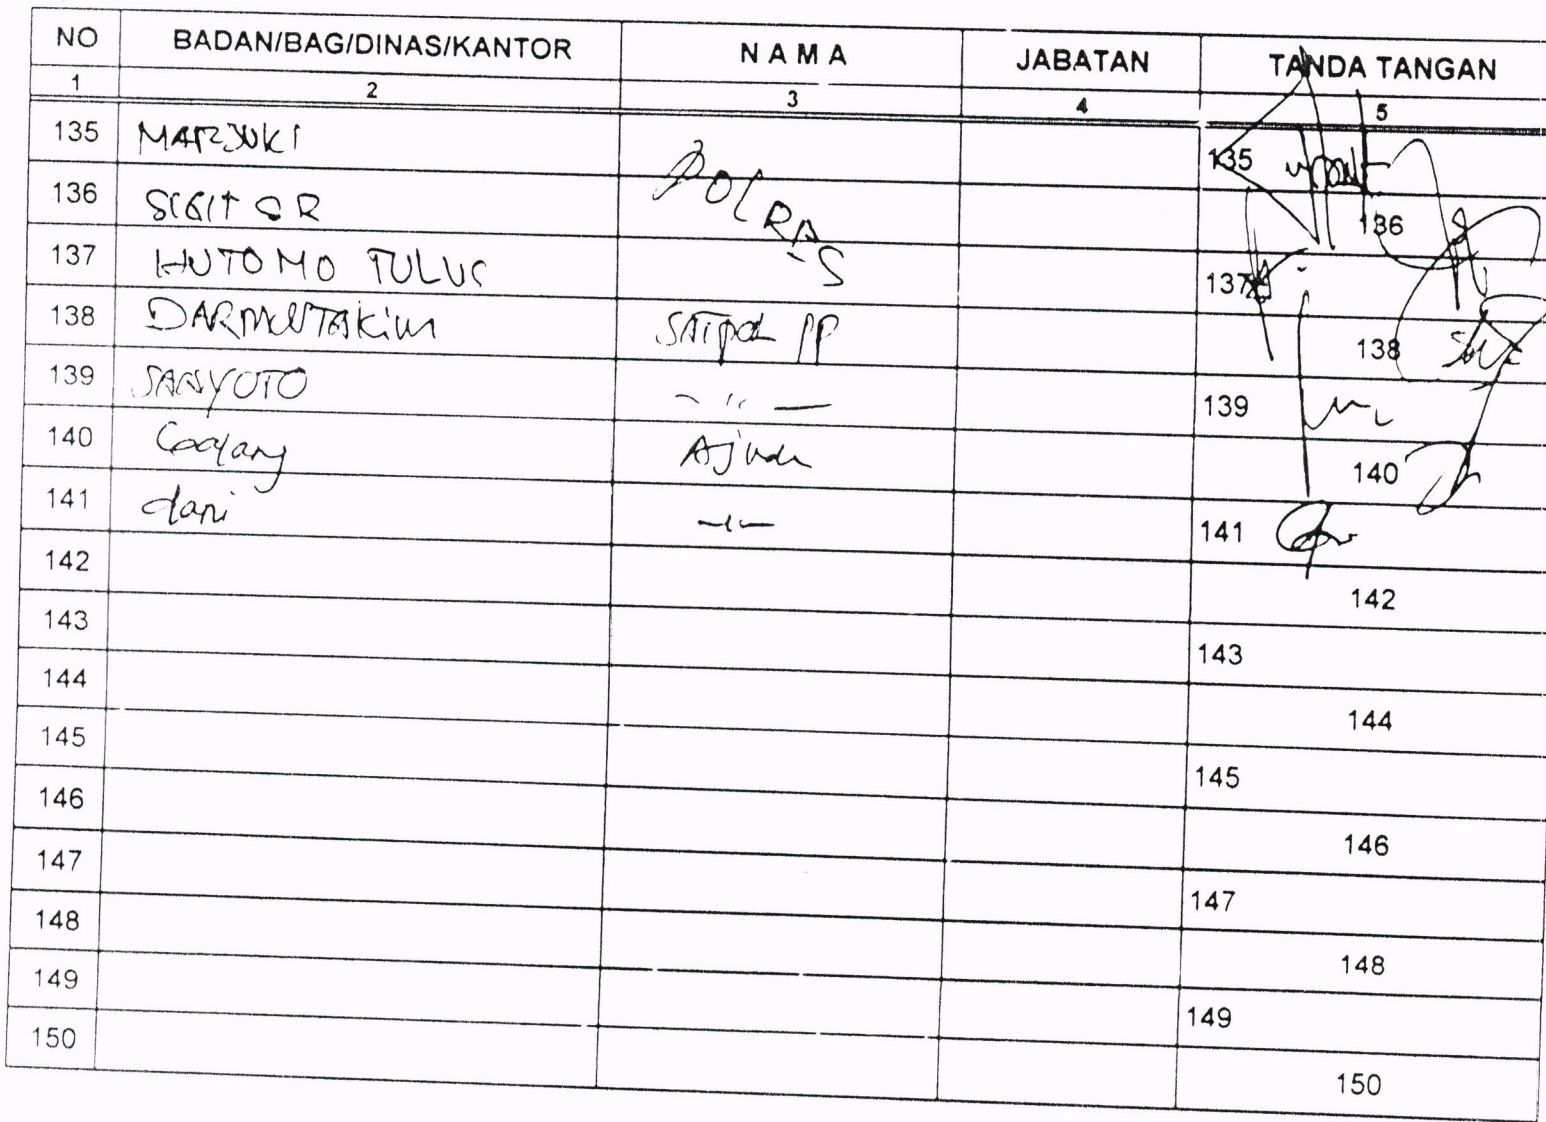 NO BADAN/BAG/DINAS/KANTOR N A M A JABATAN TANDA TANGAN
1 2 3 4 5
135 MARJUKI POLRAS 135
136 SIGIT S R 136
137 HUTOMO TULUS 137
138 SATPOL PP 138
139 SANYOTO — " — 139
140 Ajudan 140
141 dani — " — 141
142 142
143 143
144 144
145 145
146 146
147 147
148 148
149 149
150 150